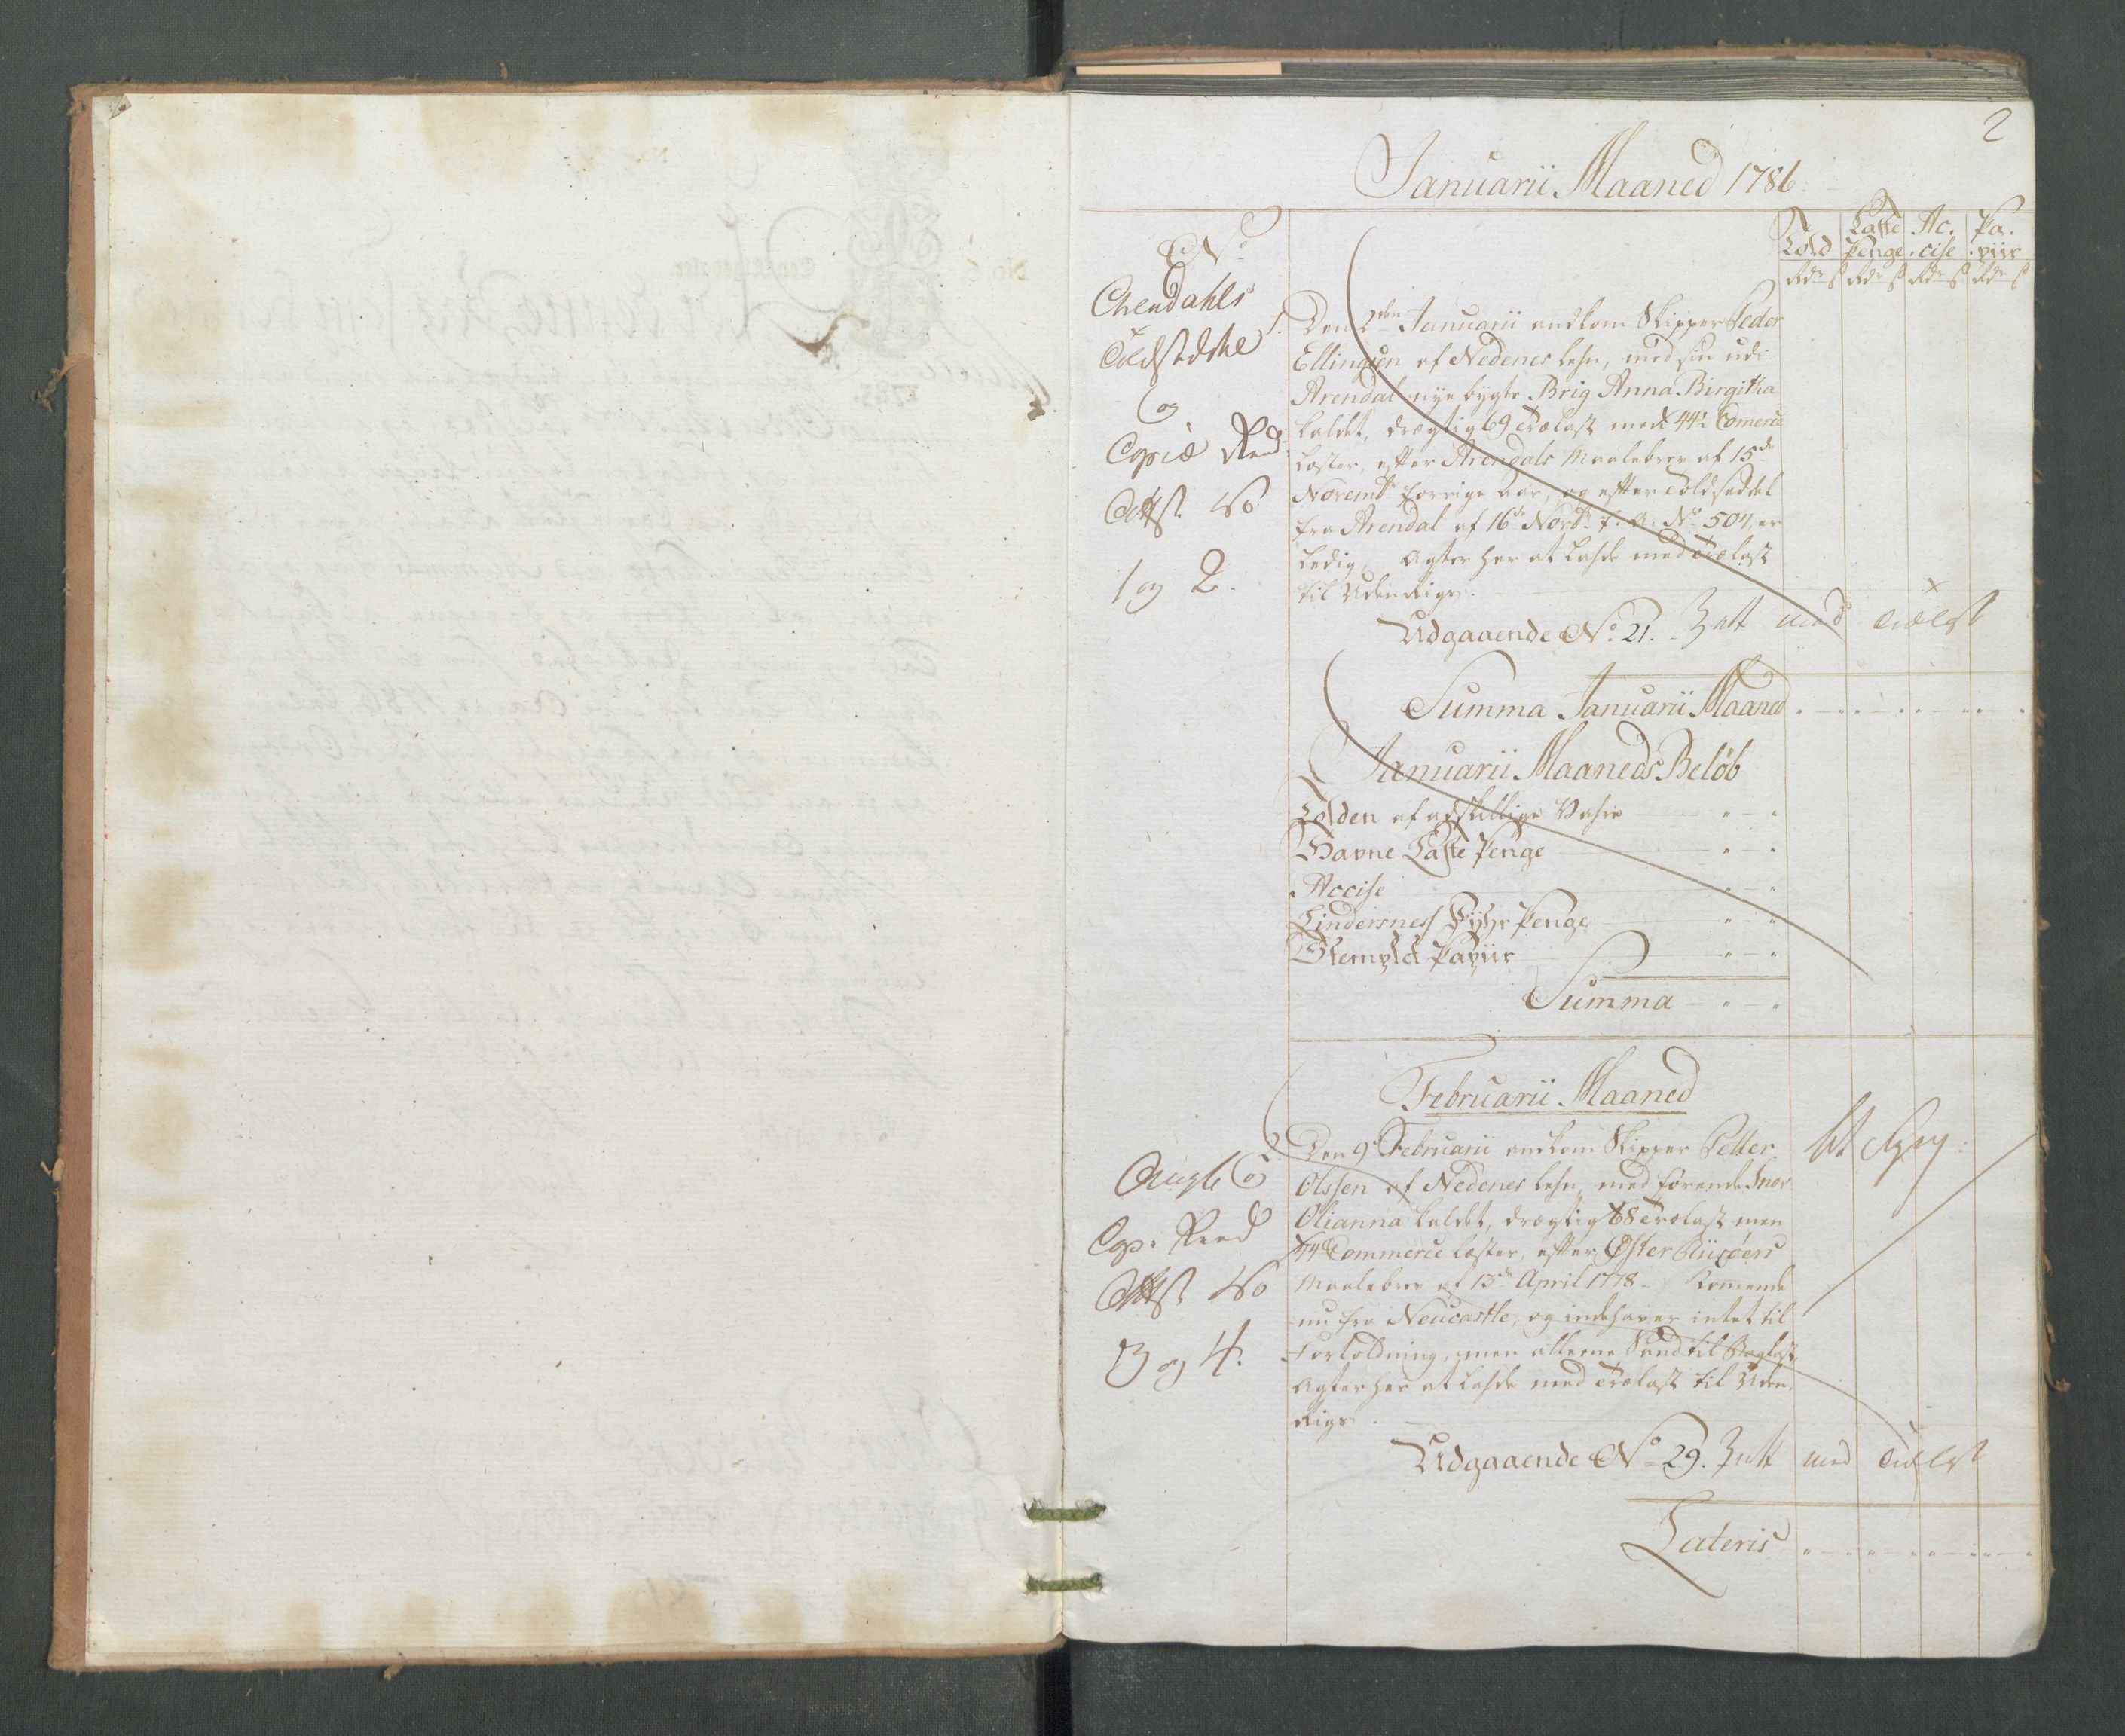 2
Januarii Maaned 1786.
No.
Told
Laste Penge
Ac. cise
Pa. piir
Rdr ß Rdr ß Rdr ß Rdr ß
Arendahls
Toldseddel
og
Copie
Attst. No
1 og 2.
1. Den 2den Januarii ankom Skipper Peder
Ellingsen af Nedenes Lehn, med sin udi
Arendal nye bygte Brig Anna Birgitha
kaldet, drægtig 69 Trælast med 44½ Comerce
Læster, efter Arendals Maalebrev af 15de
Novembr forrige Aar, og efter Toldseddel
fra Arendal af 16de Novbr f. A. No 504, er
Ledig, Agter her at Lahde med Trælast
til Udenrigs.
Udgaaende No. 21. med Trælast
Summa Januarii Maaned
Januarii Maaneds Beløb
Tolden af adskillige Vahre
Havne Laste Penge
Accise
Lindersnes Fyhr Penge
Stemplet Papiir
Summa
Februarii Maaned
og
Cop.
Attst No
3 og 4.
2. Den 9. Februarii ankom Skipper Petter
Olssen af Nedenes Lehn, med førende Snov
Olianna kaldet, drægtig 68 Trælast men
44 Commerce Læster, efter Øster Riisøers
Maalebrev af 13de April 1778. Komende
nu fra Neucastle, og indehaver intet til
Fortoldning, men alleene Sand til Baglast
Agter her at Lahde med Trælast til Uden
Rigs.
Udgaaende No 29. med Trælast
Lateris